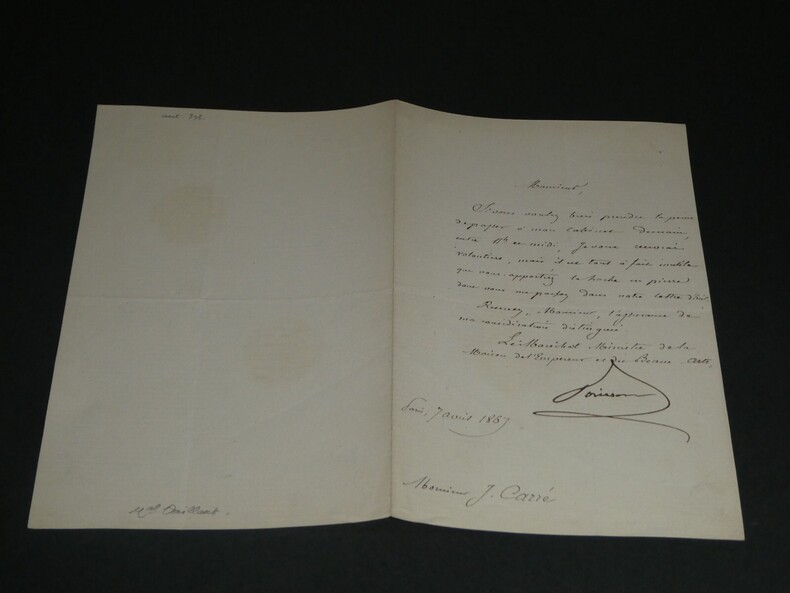 Monsieur,
Si vous voulez bien prendre la peine
de passer à mon cabinet Demain,
entre 11h et midi, Je vous recevrai
volontiers, mais il est tout à fait inutile
que vous apportiez la hache en pierre
dont vous me parlez dans votre lettre d'hier
Recevez, Monsieur, l'assurance de
ma considération distinguée
Le Maréchal Ministre de la
Maison de l'Empereur et des Beaux Arts,
Vaillant
Paris, 7 avril 1867
Monsieur J. Carré
Mal Vaillant.